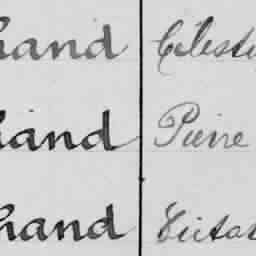 hand Célesti
hand Pierre
hand Victor